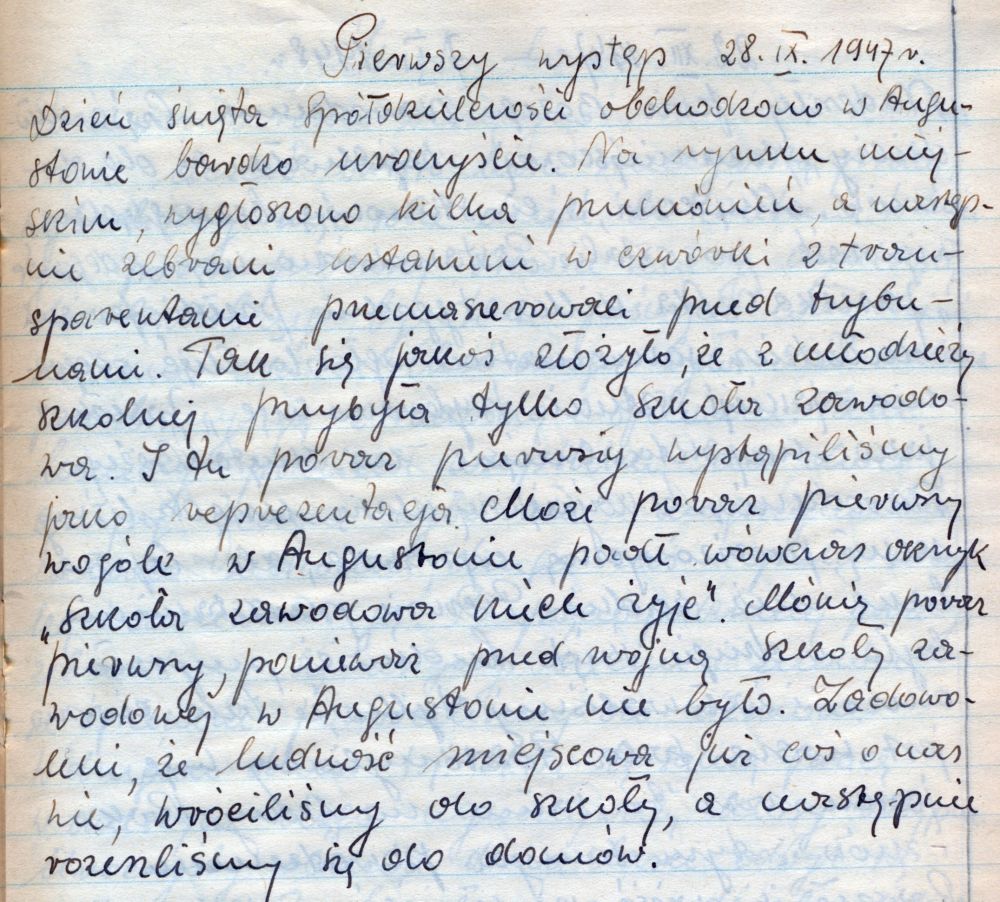 Pierwszy występ 28. IX. 1947 r.
Dzień święta Spółdzielczości obchodzono w Augu-
stowie bardzo uroczyście. Na rynku miej-
skim, wygłoszono kilka przemówień, a następ-
nie zebrani ustawieni w czwórki z tran-
sparentami przemaszerowali przed trybu-
nami. Tak się jakoś złożyło, że z młodzieży
szkolnej przybyła tylko szkoła zawodo-
wa. I tu poraz pierwszy wystąpiliśmy
jako reprezentacja. Może poraz pierwszy
wogóle w Augustowie padł wówczas okrzyk
„Szkoła zawodowa niech żyje”. Mówię poraz
pierwszy, ponieważ przed wojną szkoły za-
wodowej w Augustowie nie było. Zadowo-
leni, że ludność miejscowa już coś o nas
wie, wróciliśmy do szkoły, a następnie
rozeszliśmy się do domów.